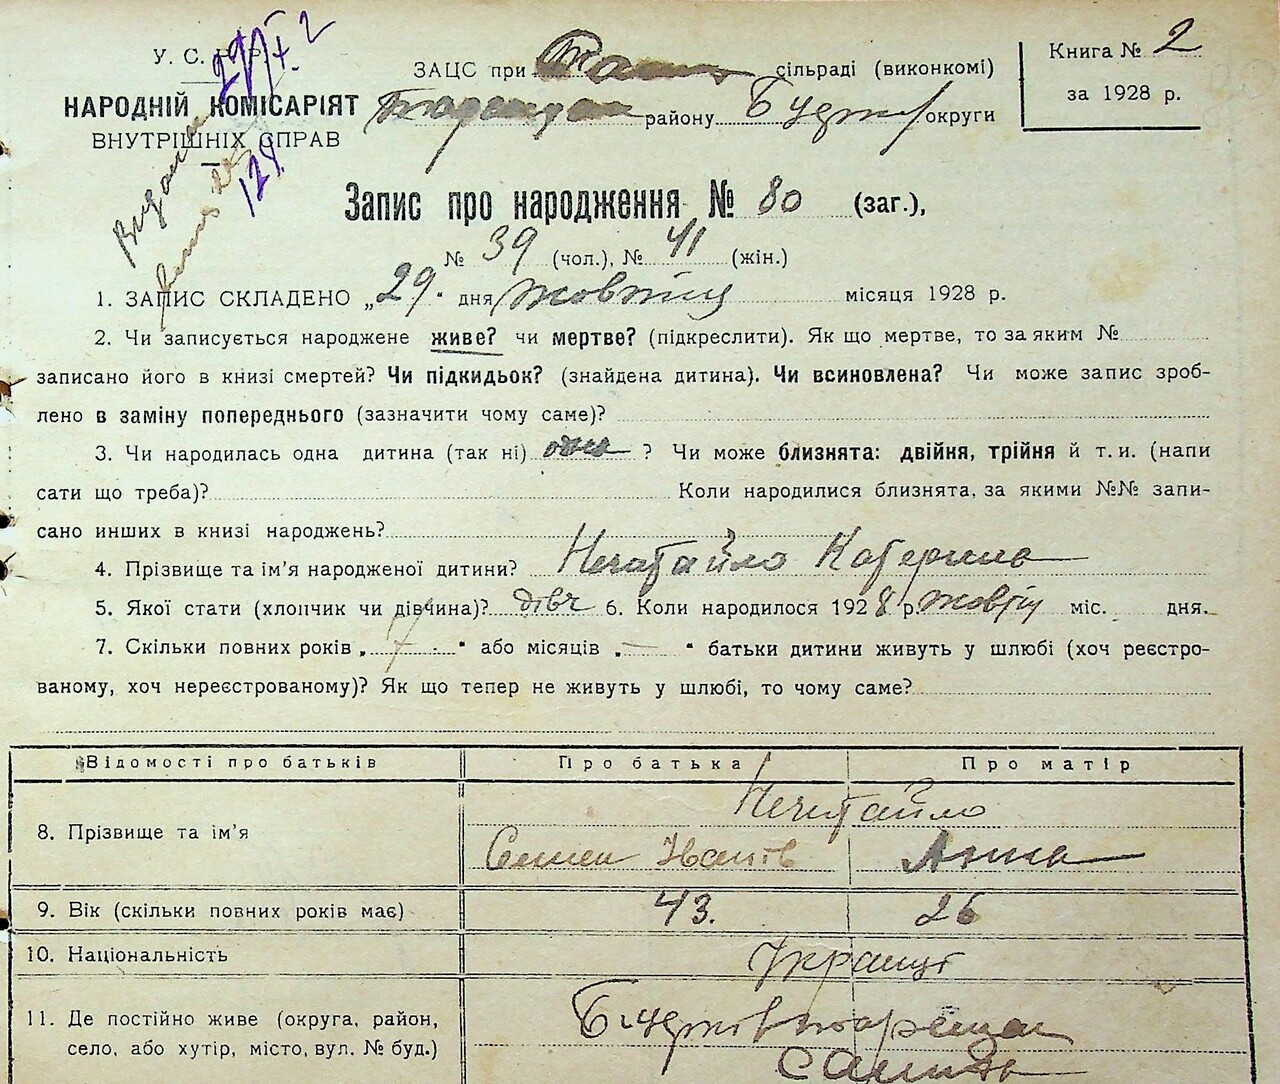 У. С. Р. Р.
НАРОДНІЙ КОМІСАРІЯТ
ВНУТРІШНІХ СПРАВ
ЗАЦС при сільраді (виконкомі)
району округи
Книга № 2
за 1928 р.
Запис про народження № 80 (заг.),
№ 39 (чол.), № 41 (жін.)
1. ЗАПИС СКЛАДЕНО „29“ дня жовтня місяця 1928 р.
2. Чи записується народжене живе? чи мертве? (підкреслити). Як що мертве, то за яким №
записано його в книзі смертей? Чи підкидьок? (знайдена дитина). Чи всиновлена? Чи може запис зроб-
лено в заміну попереднього (зазначити чому саме)?
3. Чи народилась одна дитина (так ні) одна ? Чи може близнята: двійня, трійня й т. и. (напи
сати що треба)? Коли народилися близнята, за якими №№ запи-
сано инших в книзі народжень?
4. Прізвище та ім'я народженої дитини? Нечитайло Катерина
5. Якої стати (хлопчик чи дівчина)? дівч 6. Коли народилося 1928 р. жовтн міс. дня.
7. Скільки повних років „7“ або місяців „—“ батьки дитини живуть у шлюбі (хоч реєстро-
ваному, хоч нереєстрованому)? Як що тепер не живуть у шлюбі, то чому саме?
Відомості про батьків Про батька Про матір
8. Прізвище та ім'я Нечитайло
Семен Іванів Анна
9. Вік (скільки повних років має) 43. 26
10. Національність Українці
11. Де постійно живе (округа, район,
село, або хутір, місто, вул. № буд.)